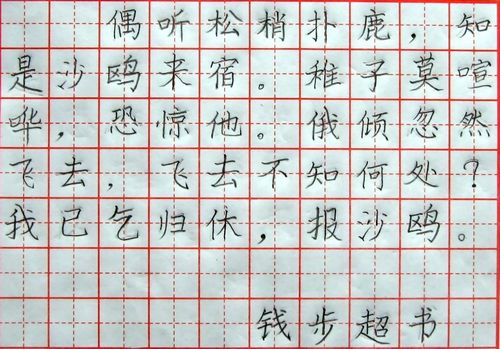 偶听松梢扑鹿，知
是沙鸥来宿。稚子莫喧
哗，恐惊他。俄倾忽然
飞去，飞去不知何处？
我已乞归休，报沙鸥。
钱步超书